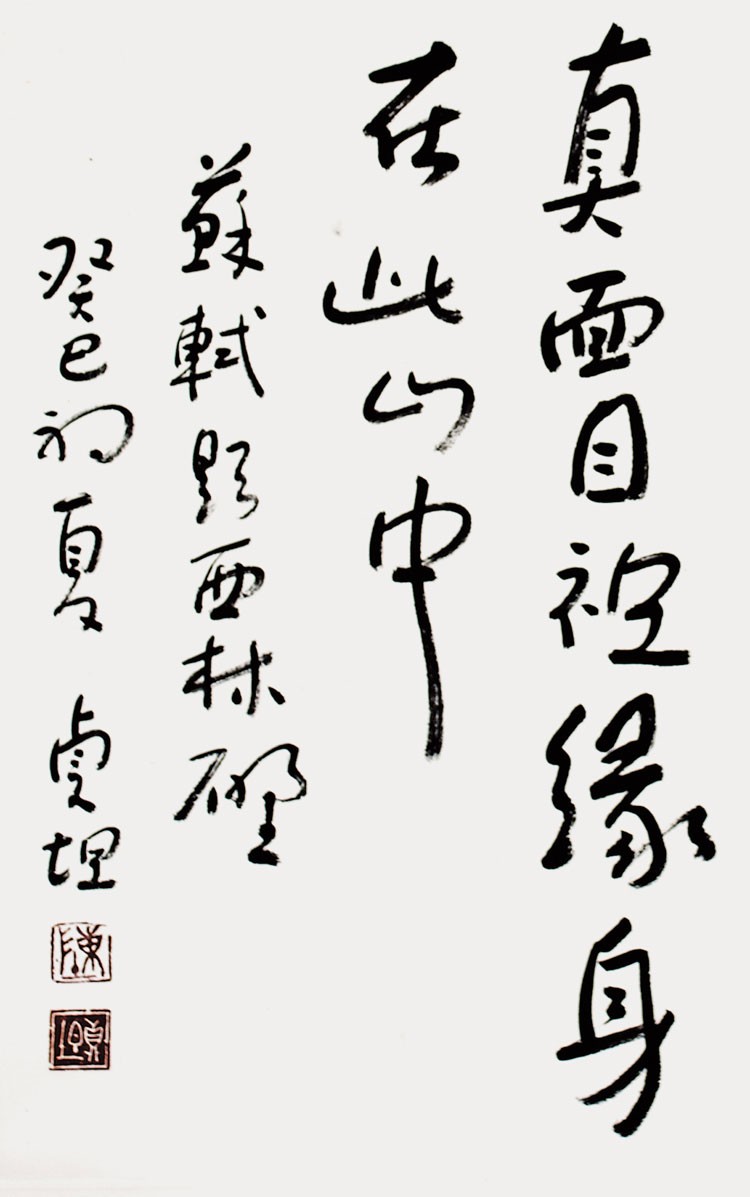 真面目祗緣身
在此山中
蘇軾題西林壁
癸巳初夏 虔坦
陳